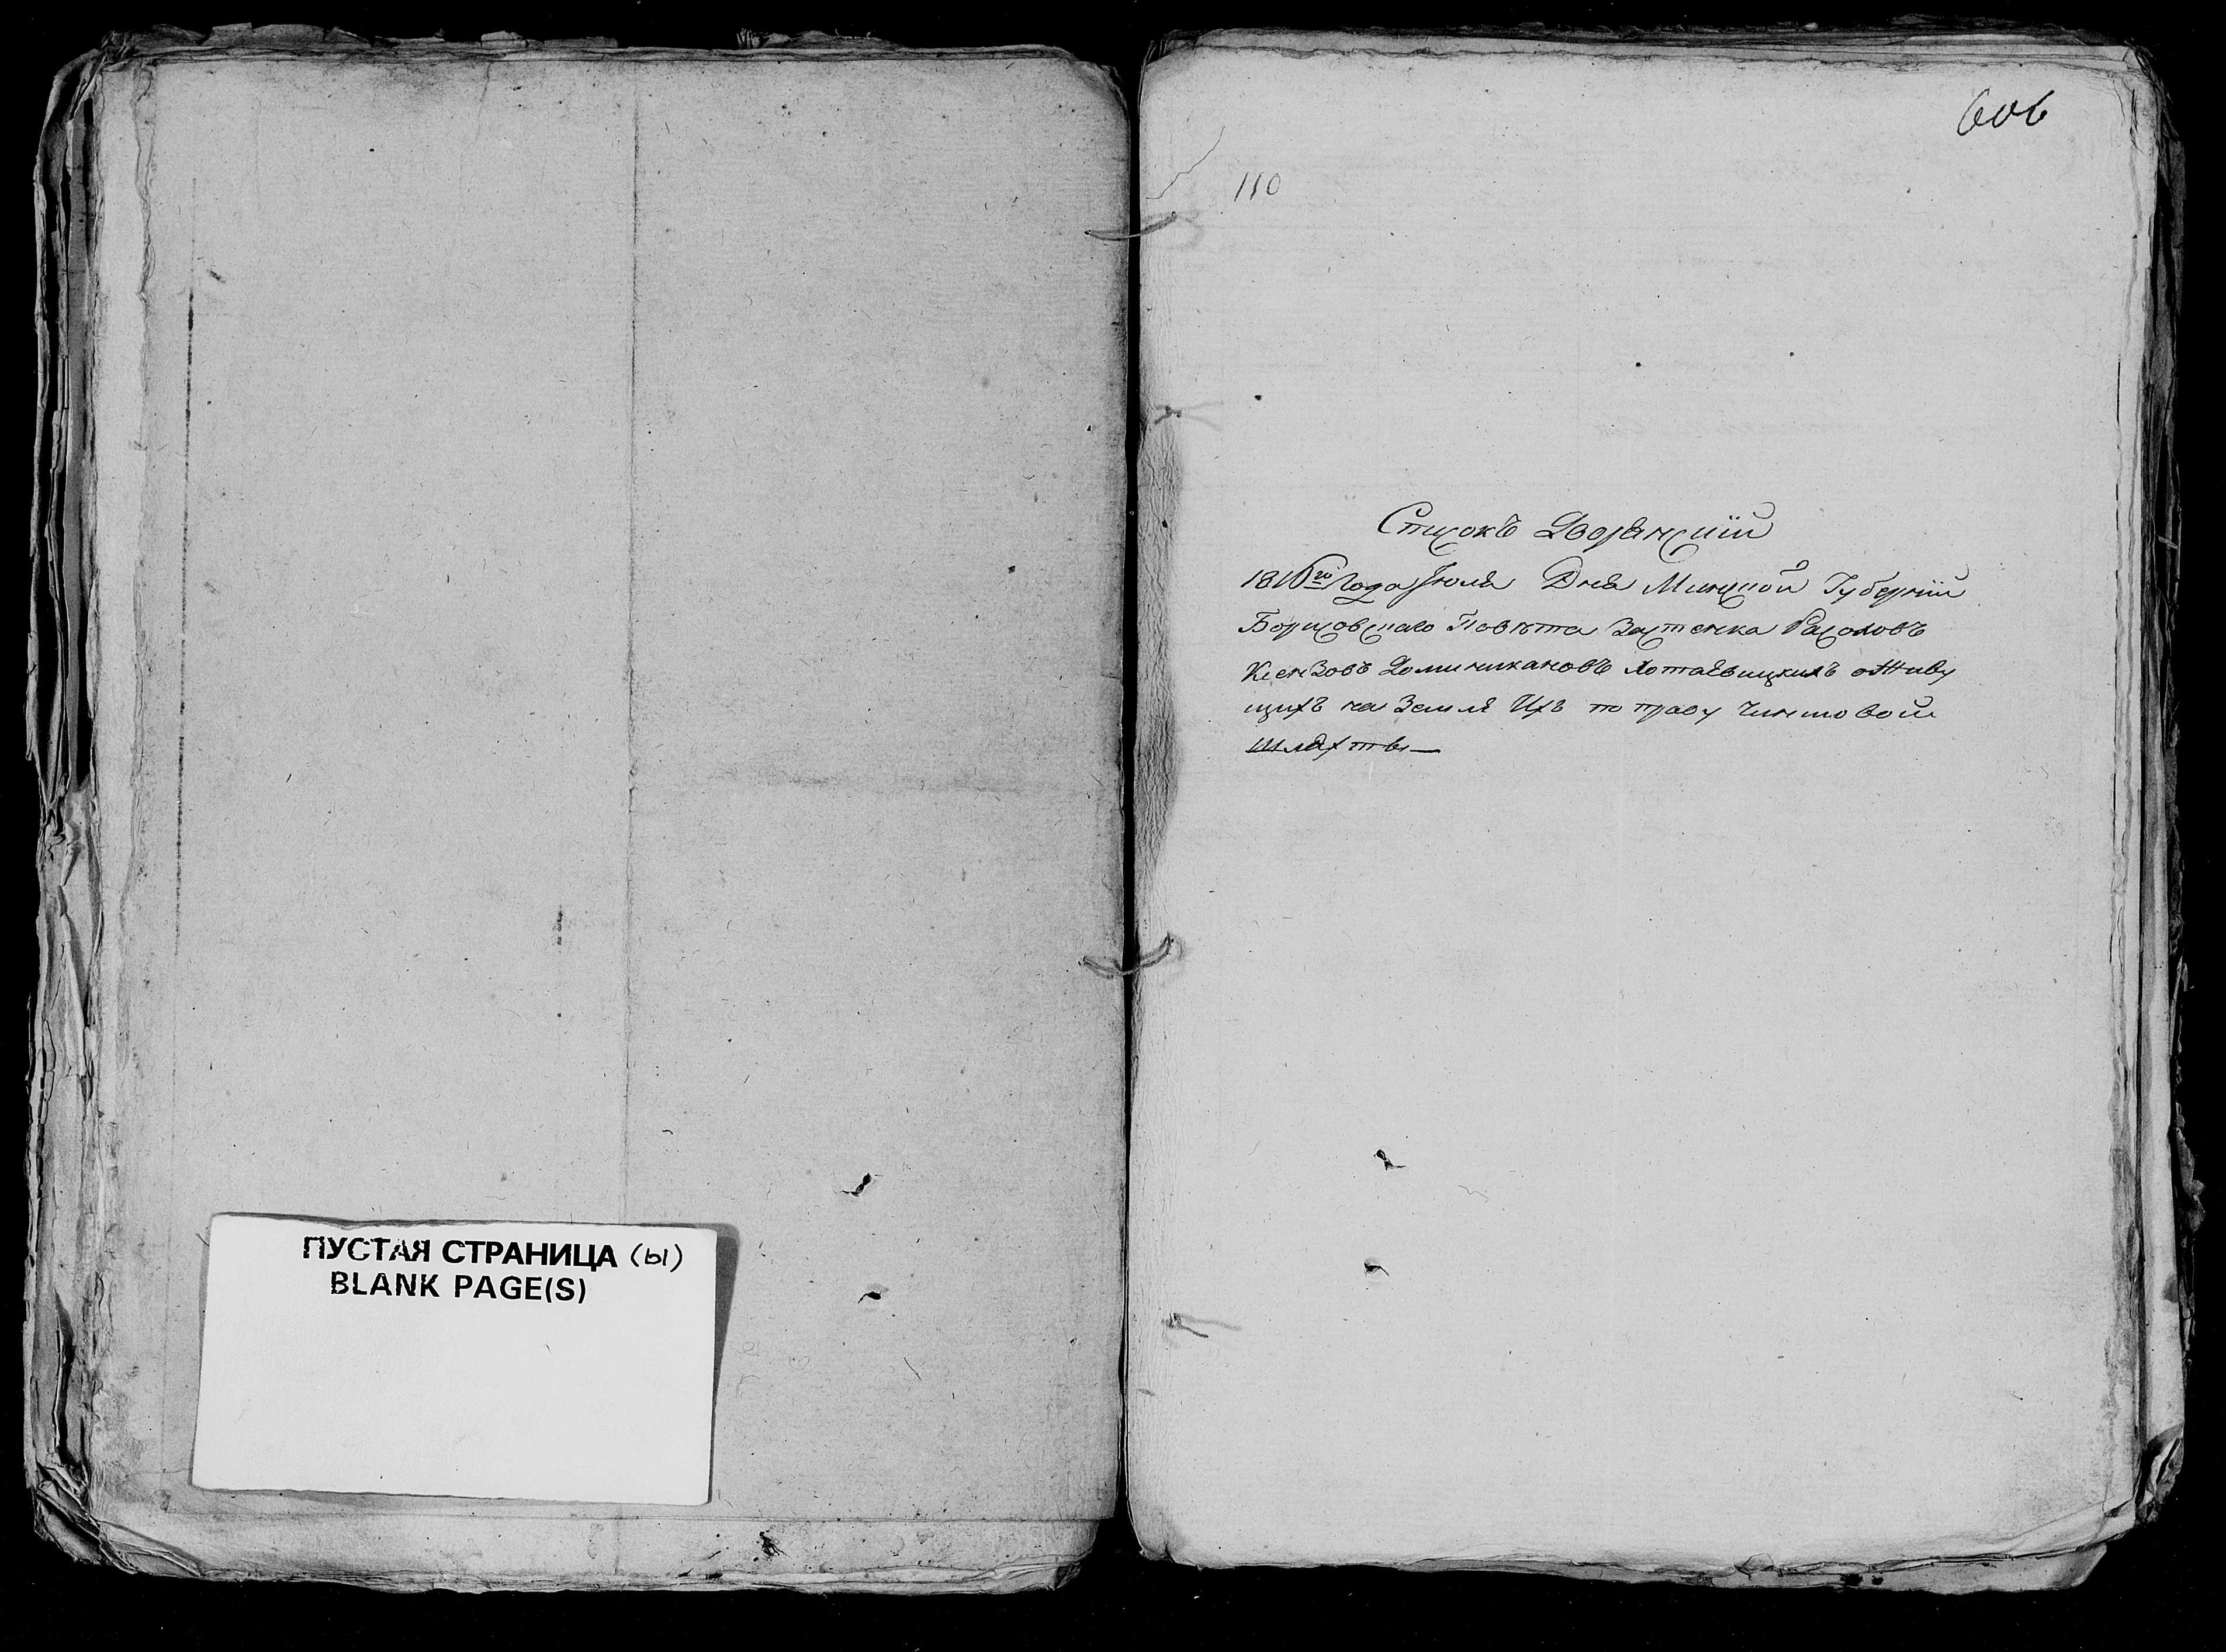 ПУСТАЯ СТРАНИЦА (ы)
BLANK PAGE(S)
606
110
Списокъ Дворянскій
1816го Года Іюля Дня Минской Губерніи
Борисовскаго Повѣта Застенка Расоховъ
Ксензовъ Доминикановъ Хотаевицкихъ о Живу
щихъ на Земля Ихъ по праву Чиншовой
шляхты —